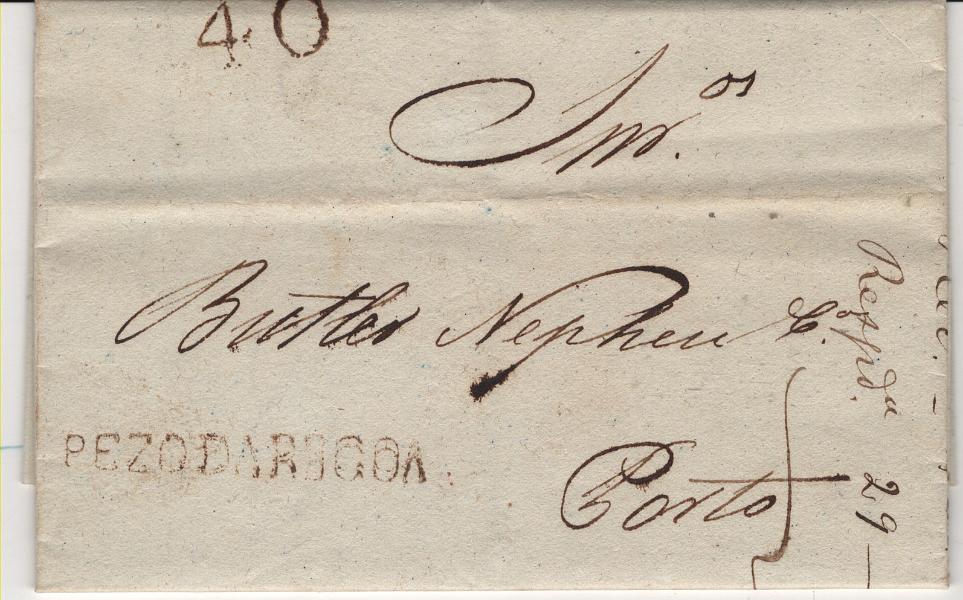 40
Snr.os
Butler Nephew & Co.
PEZODAREGOA
Porto
Respda 29